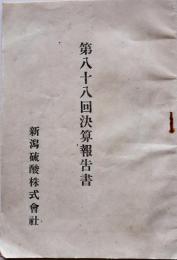 第八十八回決算報告書
新潟硫酸株式會社